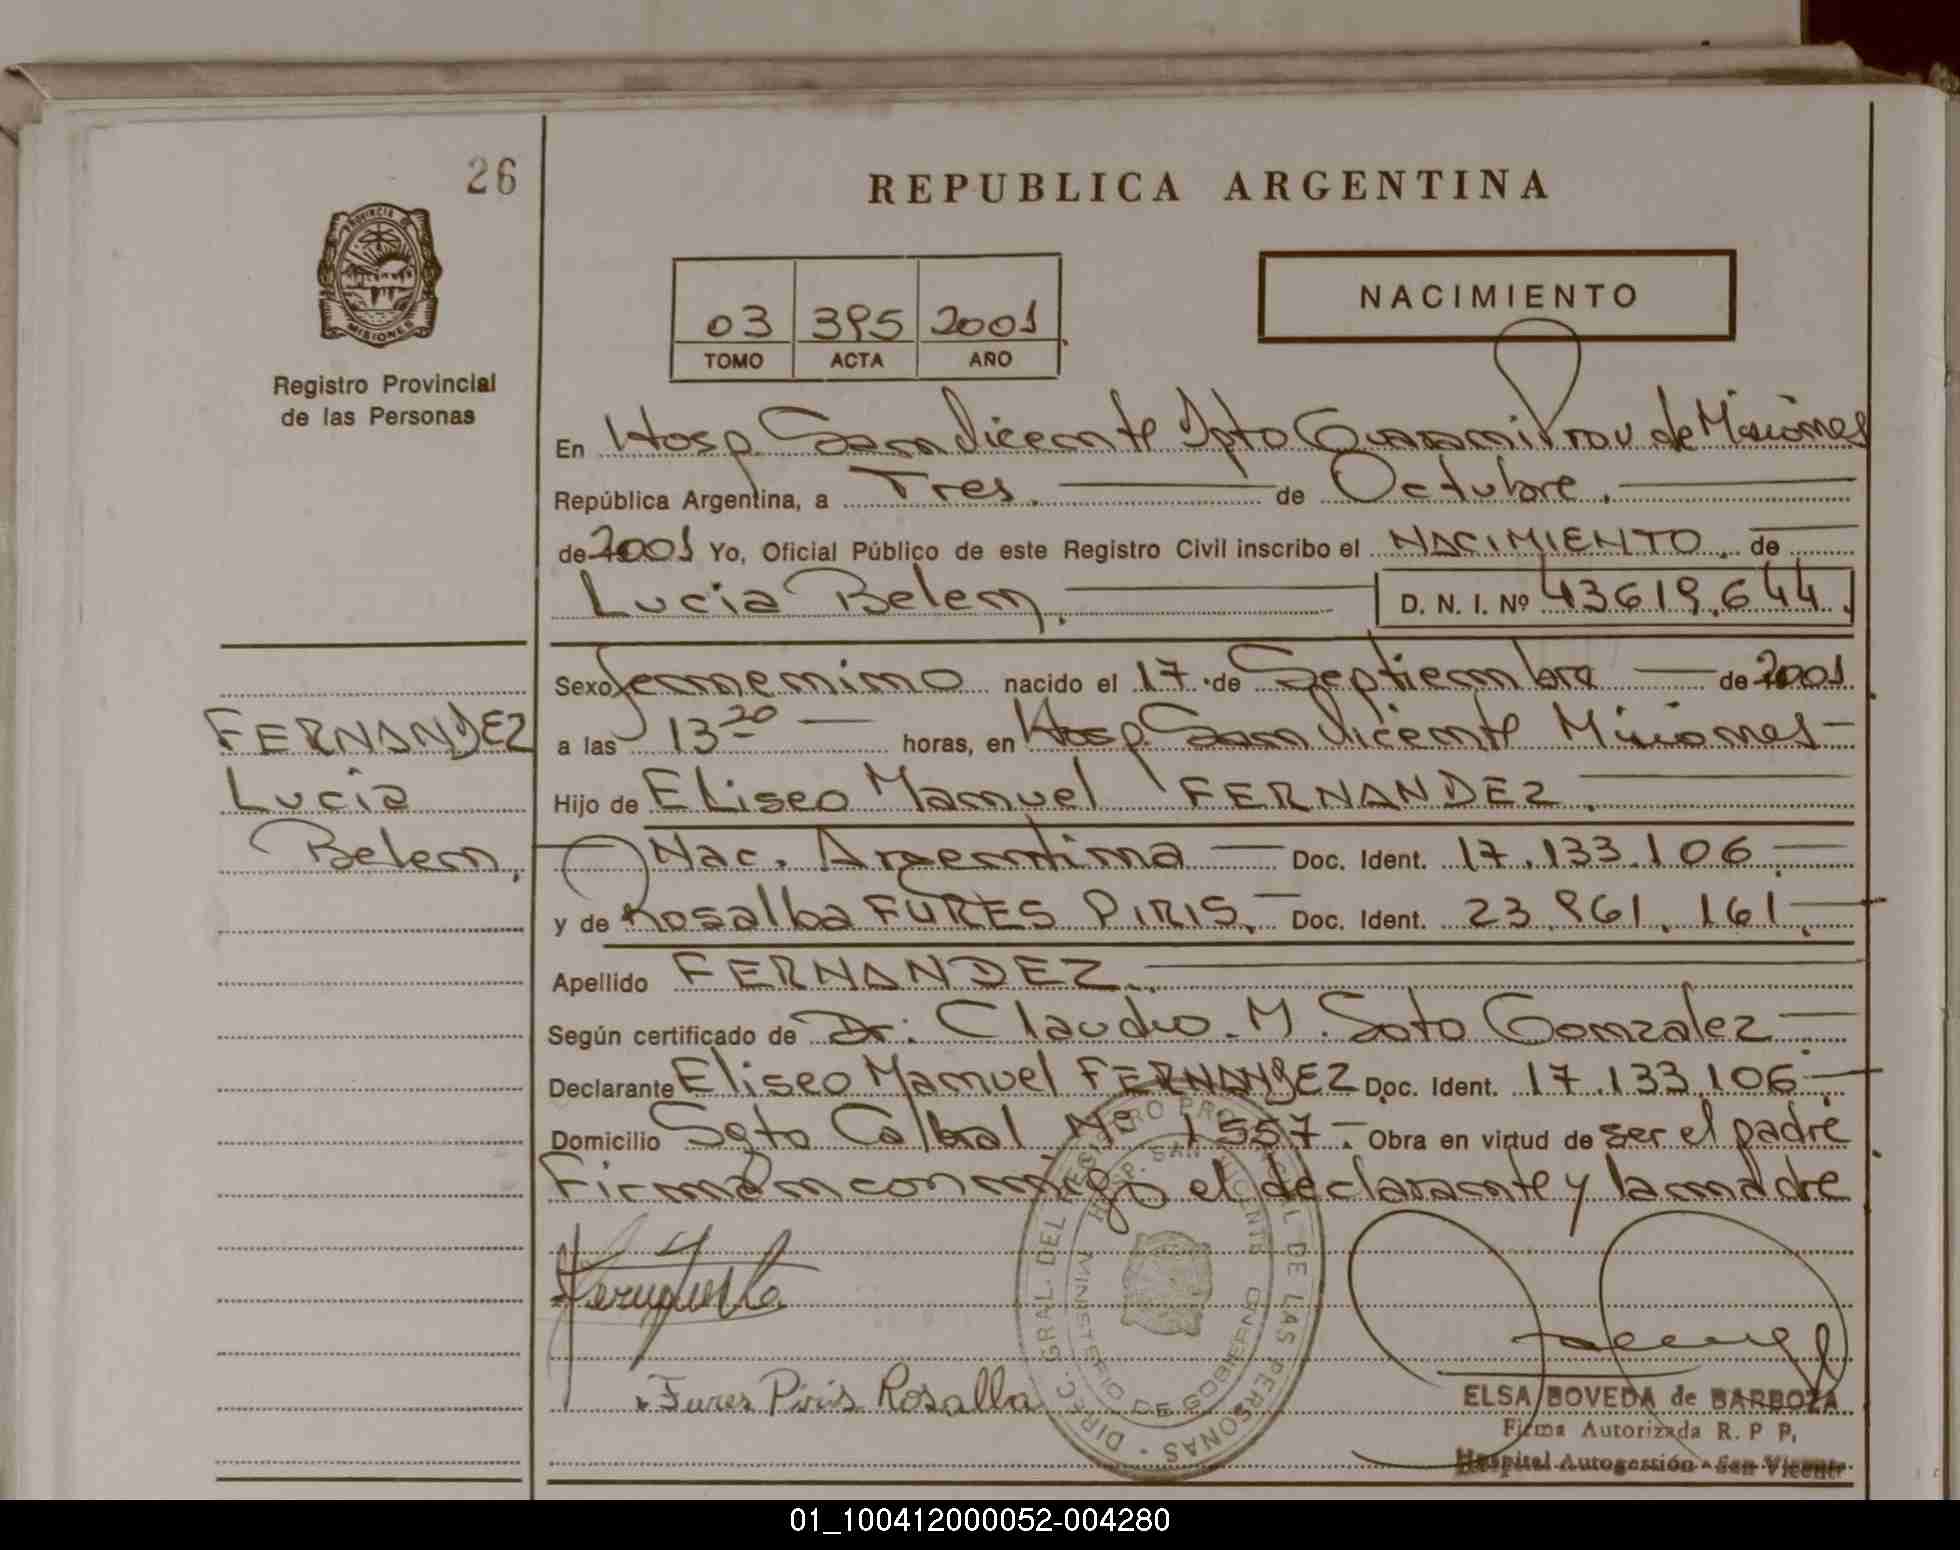 26
REPUBLICA ARGENTINA
PROVINCIA DE
MISIONES
Registro Provincial
de las Personas
03 395 2001
TOMO ACTA AÑO
NACIMIENTO
En Hosp San Vicente Dpto Guarani Prov de Misiones
República Argentina, a Tres. de Octubre.
de 2001 Yo, Oficial Público de este Registro Civil inscribo el NACIMIENTO. de
Lucia Belem. D. N. I. Nº 43619.644.
Sexo femenino nacido el 17 de Septiembre de 2001
FERNANDEZ
Lucia
Belem.
a las 13 20 horas, en Hosp San Vicente Misiones
Hijo de Eliseo Manuel FERNANDEZ.
Nac. Argentina Doc. Ident. 17.133.106
y de Rosalba FURES PIRIS. Doc. Ident. 23.961.161
Apellido FERNANDEZ.
Según certificado de Dr: Claudio. M. Soto Gonzalez
Declarante Eliseo Manuel FERNANDEZ Doc. Ident. 17.133.106
Domicilio Sgto Cabral Nº 1557 Obra en virtud de ser el padre
Firman conmigo el declarante y la madre
DIREC. GRAL. DEL REGISTRO PROVINCIAL DE LAS PERSONAS
HOSP. SAN VICENTE
MINISTERIO DE GOBIERNO
Fures Piris Rosalba
ELSA BOVEDA de BARBOZA
Firma Autorizada R. P P.
Hospital Autogestión - San Vicente
01_100412000052-004280